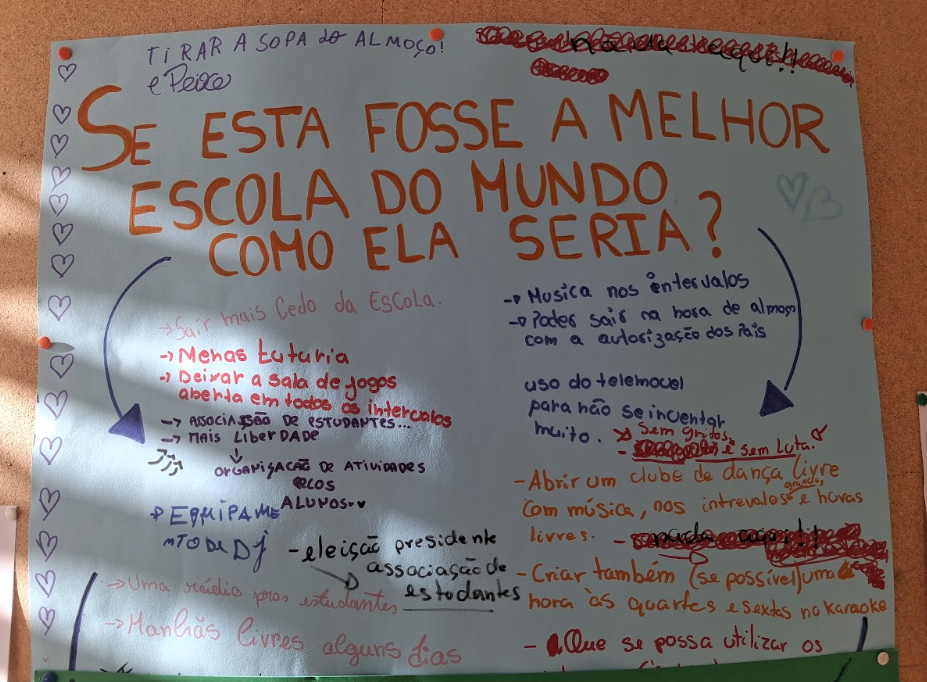 TIRAR A SOPA do ALMOÇO!
e Peixe
nada aqui!!
SE ESTA FOSSE A MELHOR
ESCOLA DO MUNDO
COMO ELA SERIA?
→ Sair mais Cedo da EsCola.
→ Menas tuturia
→ Deixar a sala de jogos
aberta em todos os intervalos
→ ASSOCIASSÃO DE ESTUDANTES...
→ MAIS LIBERDADE
ORGANISAÇÃO DE ATIVIDADES
PELOS
ALUNOS
→ EQUIPAME
NTO DE Dj
- eleição presidente
associação de
estudantes
→ Uma rádio pros estudantes
→ Manhãs livres alguns dias
→ Musica nos intervalos
→ Poder sair na hora de almoço
com a autorização dos Pais
uso do telemovel
para não se inventar
muito.
→ Sem gritos
- e sem Luta.
- Abrir um clube de dança livre
grandes
com música, nos intrevalos e horas
livres.
- nada aqui!!
- Criar também (se possível) uma
hora às quartes e sextes no karaoke
- Que se possa utilizar os